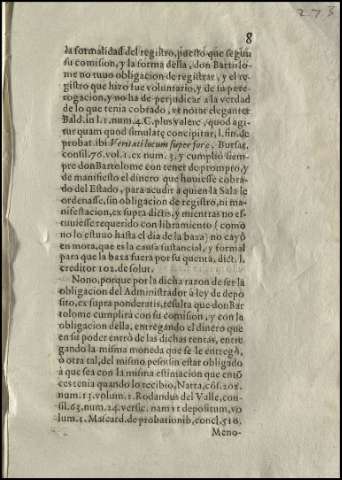 273
8
la formalidad del registro, puesto que segun
su comision, y la forma della, don Bartolo-
me no tuuo obligacion de registrar, y el re-
gistro que hizo fue voluntario, y de supere-
rogacion, y no ha de perjudicar a la verdad
de lo que tenia cobrado, vt notat eleganter
Bald. in l. 1. num. 4. C. plus valere, quod agi-
tur quam quod simulate concipitur, l. fin. de
probat. ibi Veritati locum super fore, Bursat.
consil. 76. vol. 1. ex num. 3. y cumplio siem-
pre don Bartolome con tener de prompto, y
de manifiesto el dinero que huuiesse cobra-
do del Estado, para acudir a quien la Sala le
ordenasse, sin obligacion de registro, ni ma-
nifestacion, ex supra dictis, y mientras no es-
tuuiesse requerido con libramiento (como
no lo estuuo hasta el dia de la baxa) no cayò
en mora, que es la causa sustancial, y formal
para que la baxa fuera por su quenta, dict. l.
creditor 102. de solut.
Nono, porque por la dicha razon de ser la
obligacion del Administrador à ley de depo
sito, ex supra ponderatis, resulta que don Bar
tolome cumplirà con su comision, y con la
obligacion della, entregando el dinero que
en su poder entrò de las dichas rentas, entre
gando la misma moneda que se le entregò,
ò otra tal, del mismo peso, sin estar obligado
à que sea con la misma estimacion que enton
ces tenia quando lo recibio, Natta, cõs. 208.
num. 13. volum. 1. Rodandus del Valle, con-
sil. 63. num. 24. versic. nam in depositum, vo
lum. 1. Mascard. de probationib. concl. 510.
Meno-